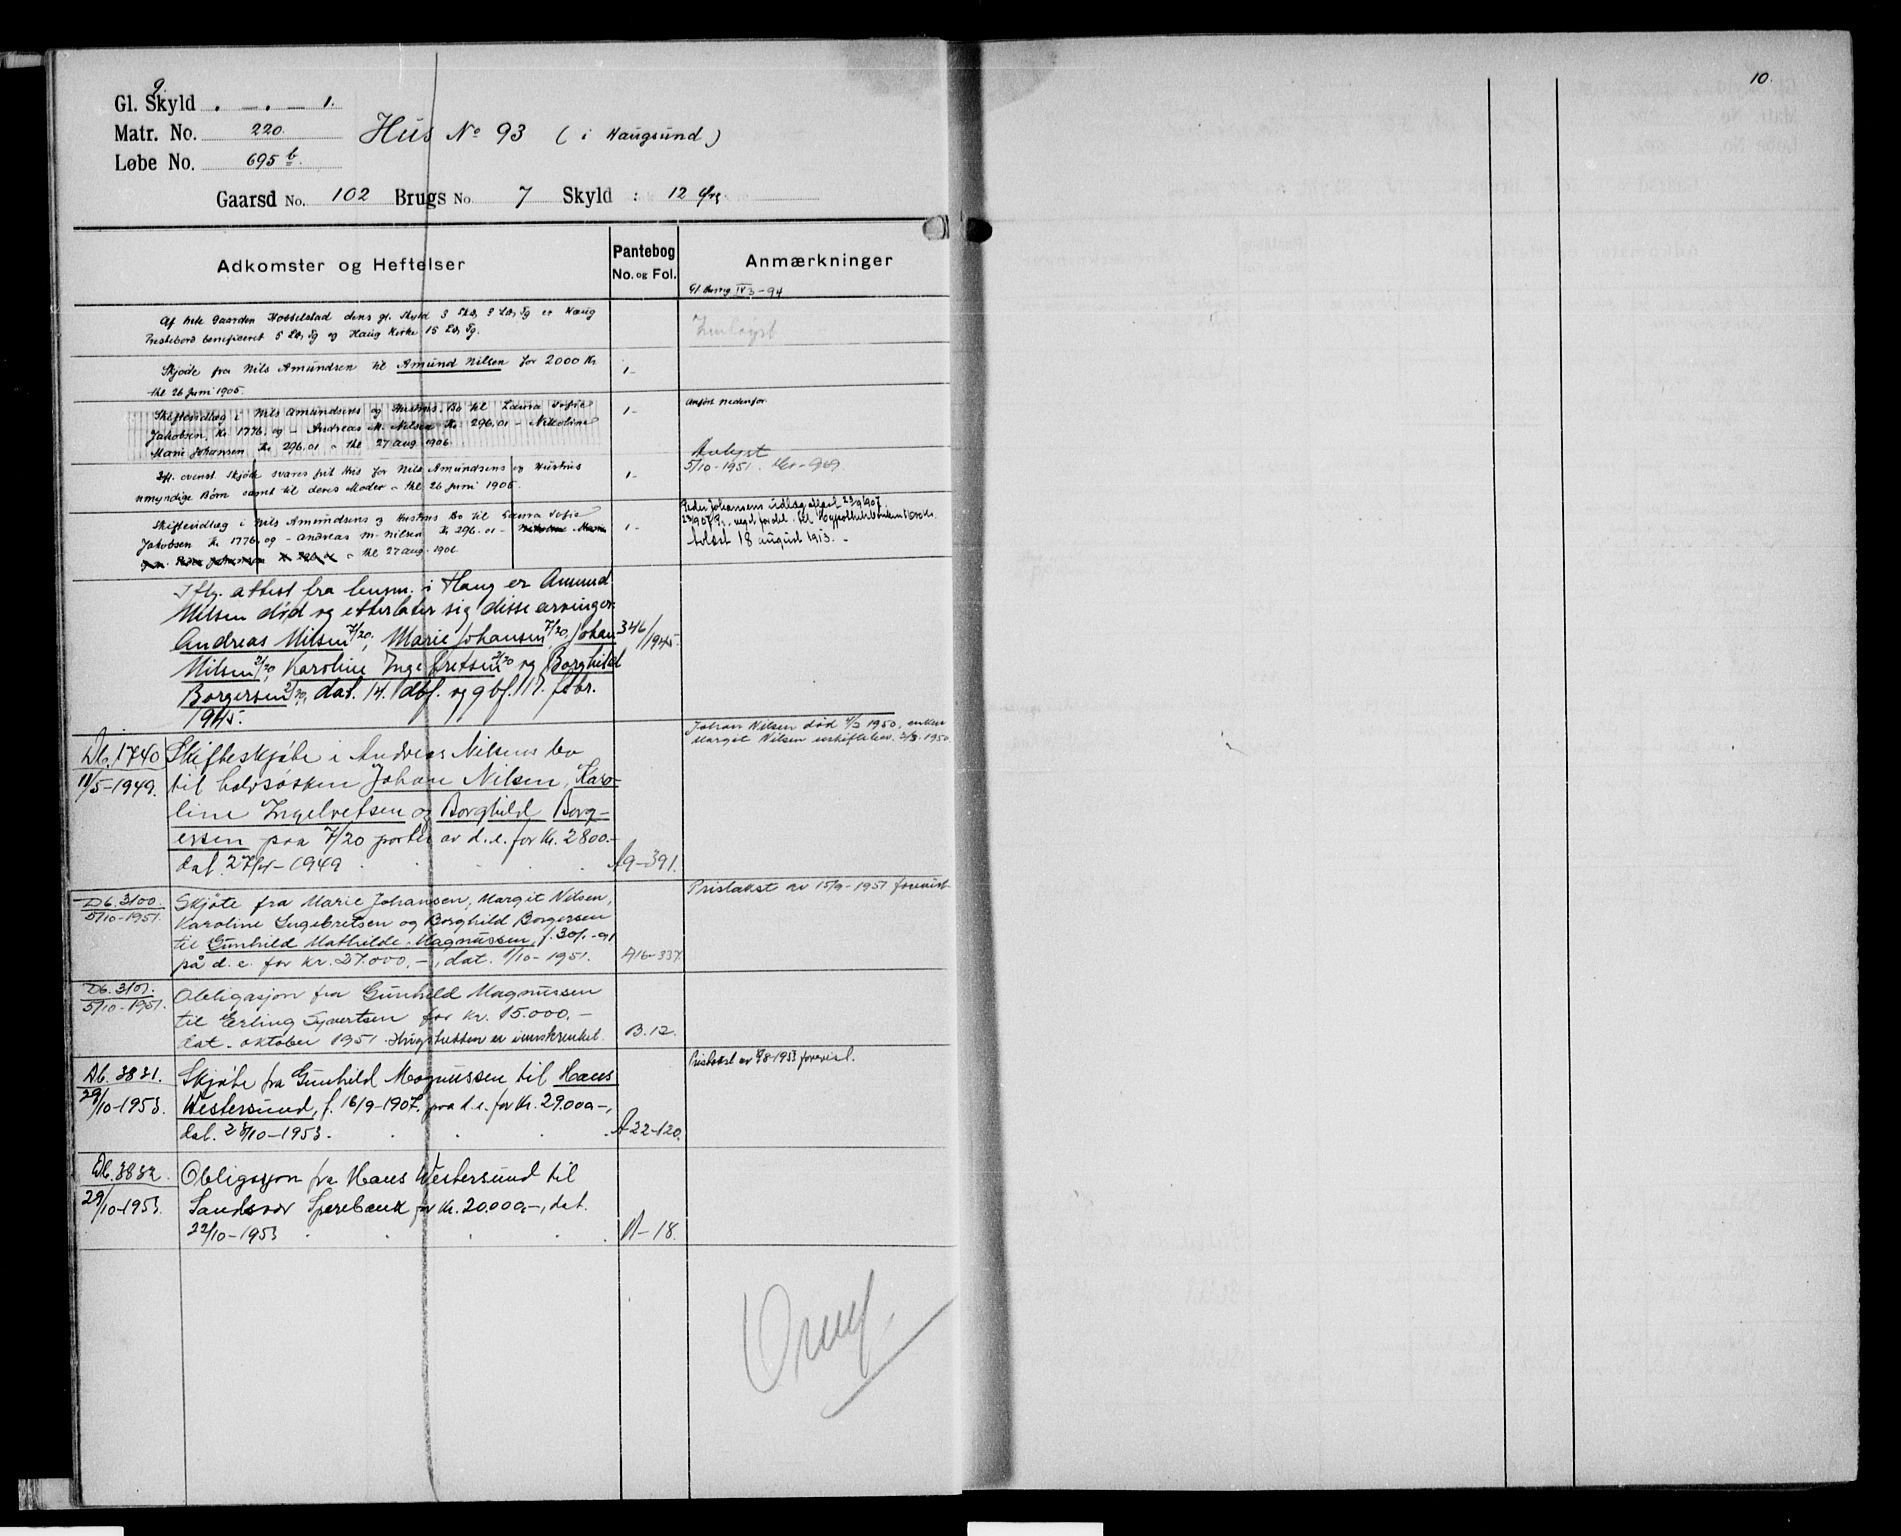 9.
Gl. Skyld . — . — 1.
Matr. No. 220.
Løbe No. 695 b.
Hus No 93 ( i Haugsund )
Gaarsd No. 102 Brugs No. 7 Skyld : 12 Øre
Adkomster og Heftelser
Pantebog
No. og Fol.
Anmærkninger
Af hele Gaarden Hobbelstad dens gl. Skyld 3 Skd. 9 Lds. Tg er Haug
Prestebord benificeret 5 Lds. Tg og Haug Kirke 15 Lds. Tg.
Skjøde fra Nils Amundsen til Amund Nilsen for 2000 Kr.
thl 26 Juni 1905.
1-
Skifteudlæg i Nils Amundsens og Hustrus Bo til Laura Sofie
Jakobsen, Kr. 1776. og – Andreas M. Nilsen Kr. 296.01 – Nikoline
Marie Johansen Kr. 296.01 – thl 27 Aug. 1906.
1-
Anført nedenfor
Ifl. ovenst. Skjøde svares frit Hus for Nils Amundsens og Hustrus
umyndige Børn samt til deres Moder – thl. 26 Juni 1905.
1-
Avlyst
5/10-1951.
Skifteudlæg i Nils Amundsens og Hustrus Bo til Laura Sofie
Jakobsen Kr. 1776. og – Andreas M. Nilsen Kr. 296.01 –
– thl 27 Aug. 1906
1-
Avlæst 18 august 1913. –
Iflg. attest fra lensm. i Haug er Amund
Nilsen død og etterlater sig disse arvinger:
Andreas Nilsen 7/20, Marie Johansen 7/20, Johan
Nilsen 2/20, Karoline Ingebretsen 2/20 og Borghild
Borgersen 2/20, dat. 14. dbf. og gbf. 17. febr.
1945.
346/1945.
Johan Nilsen død 4/2 1950, enken
Margit Nilsen uskiftebev. 2/3. 1950
Db. 1740
11/5-1949.
Skifteskjøte i Andreas Nilsens bo
til halvsøsken Johan Nilsen, Karo-
line Ingebretsen og Borghild Borg-
ersen paa 7/20 parter av d.e. for Kr. 2800.-
dat. 27/4-1949
A9-391.
Db. 3100.
5/10-1951.
Skjøte fra Marie Johansen, Margit Nilsen,
Karoline Ingebretsen og Borghild Borgersen
til Gunhild Mathilde Magnussen,
på d.e. for kr. 27.000.-, dat. 1/10-1951.
A16-337
Pristakst av 15/9-1951 forevist.
Db. 3101.
5/10-1951.
Obligasjon fra Gunhild Magnussen
til Erling Syvertsen for kr. 15.000.-
dat. oktober 1951.
B.12.
Db. 3831.
29/10-1953.
Skjøte fra Gunhild Magnussen til Hans
Westersund, f. 16/9-1907, paa d.e. for Kr. 29.000-,
dat. 28/10-1953.
A22-120.
Pristakst av 8-1953 forevist.
Db. 3832.
29/10-1953.
Obligasjon fra Hans Westersund til
Sandsvær Sparebank for Kr. 20.000,-, dat.
22/10-1953
A-18.
10.